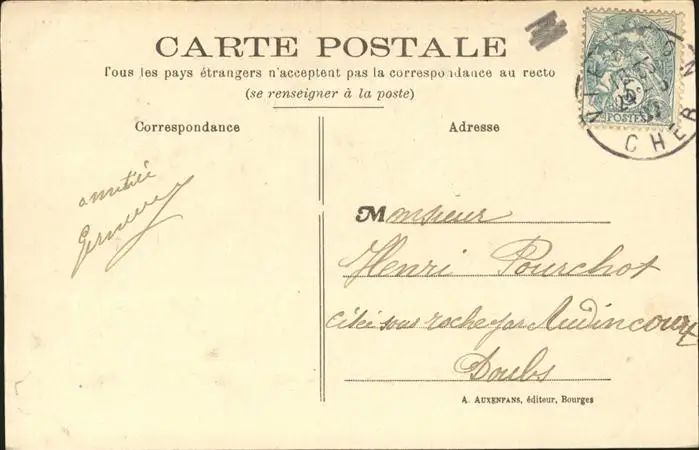 CARTE POSTALE
Tous les pays étrangers n'acceptent pas la correspondance au recto
(se renseigner à la poste)
Correspondance
Adresse
amitié
Monsieur
Henri Pourchot
cité sous roche par Audincourt
Doubs
A. AUXENFANS, éditeur, Bourges
POSTES
CHER